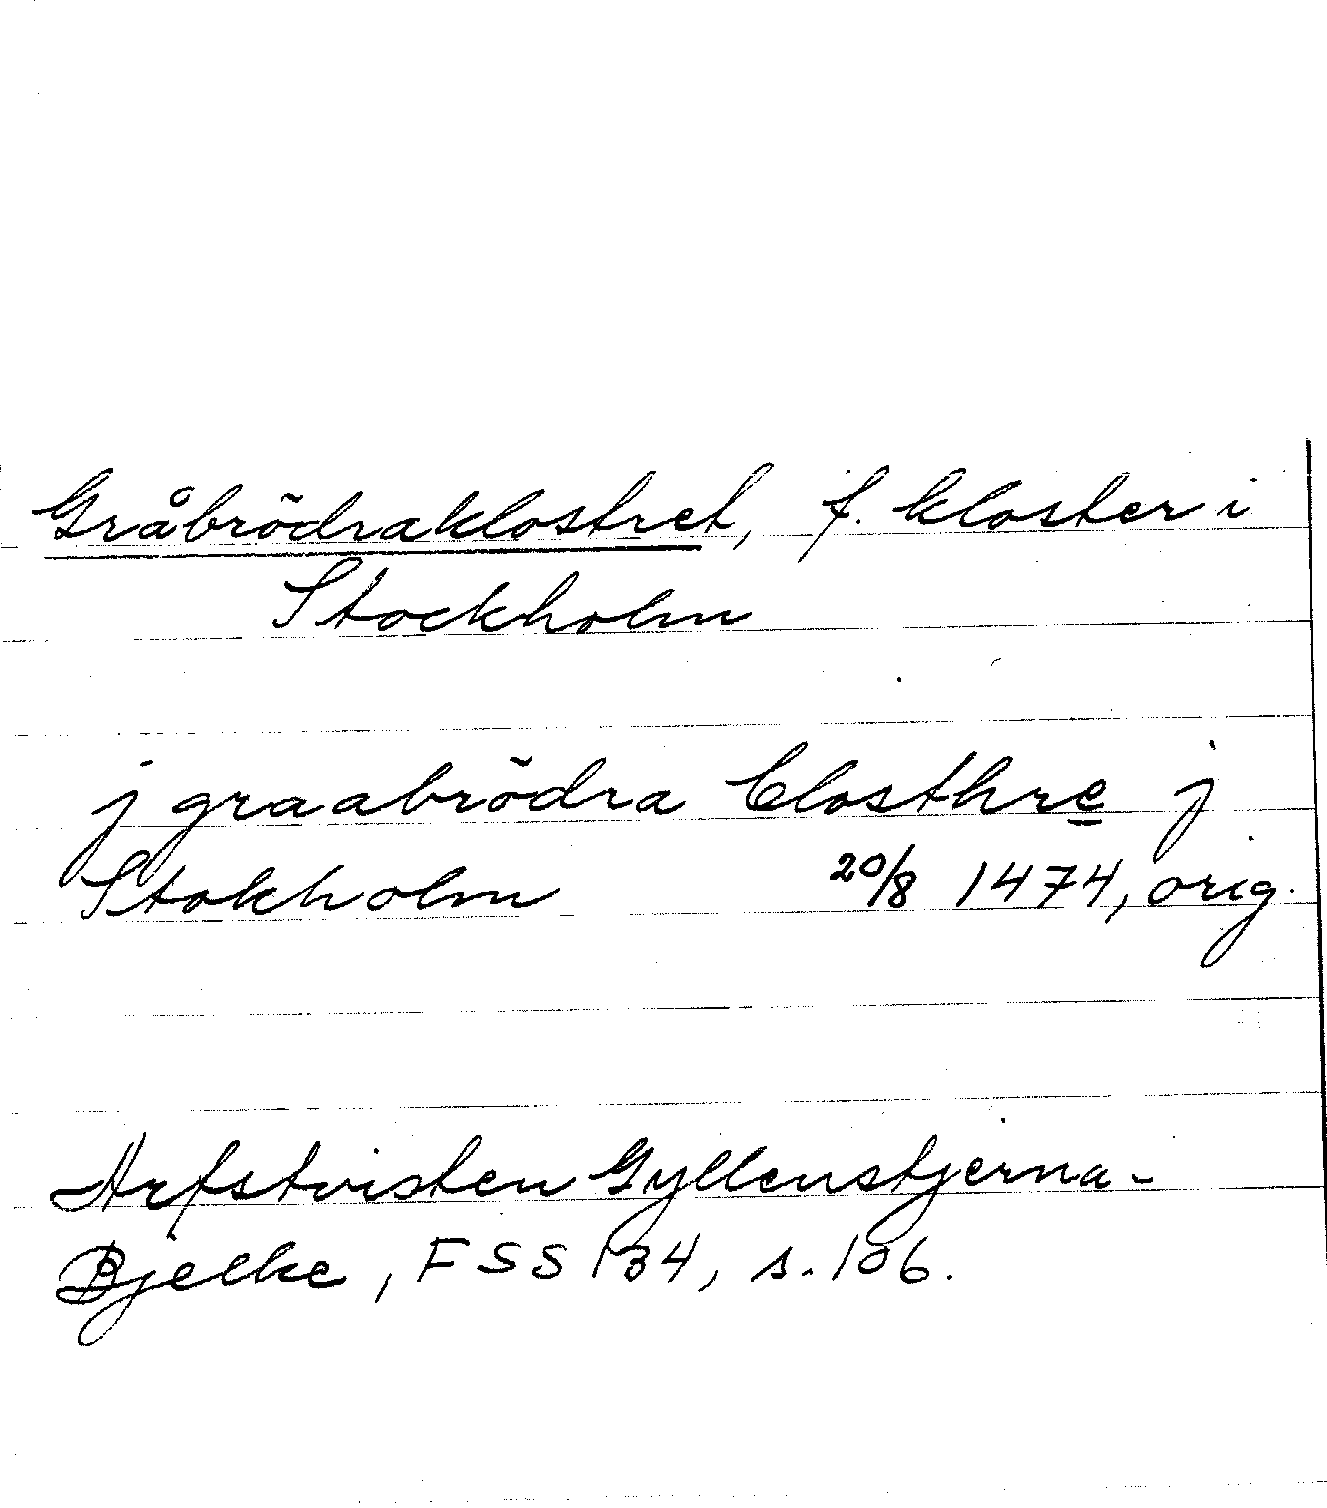 Gråbrödraklostret, f. kloster i
Stockholm
j graabrödra Closthre j
Stokholm 20/8 1474, orig.
Arfstvisten Gyllenstjerna-
Bjelke, FSS 134, s. 106.